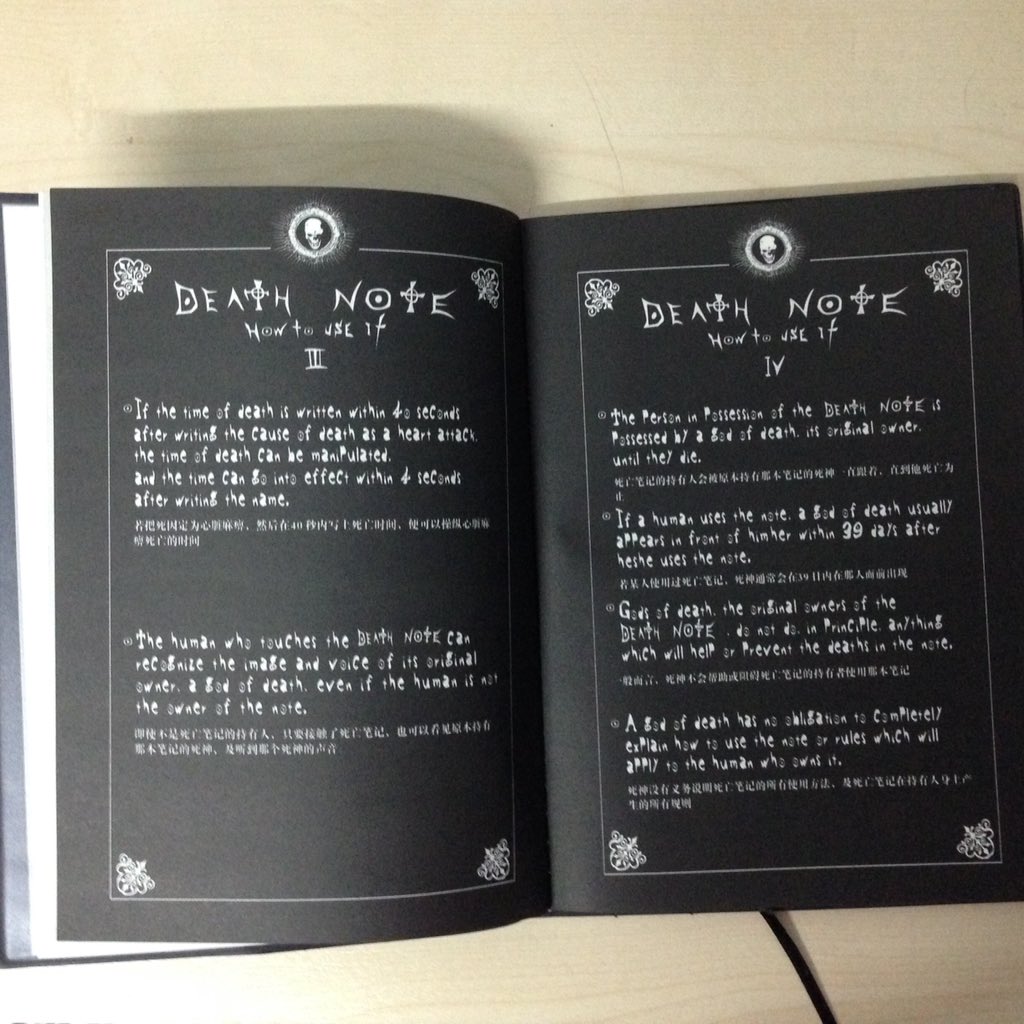 DEATH NOTE
HOW TO USE IT
III
If the time of death is written within 40 seconds
after writing the cause of death as a heart attack,
the time of death can be manipulated,
and the time can go into effect within 4 seconds
after writing the name.
若把死因定为心脏麻痹，然后在40秒内写上死亡时间，便可以操纵心脏麻
痹死亡的时间
The human who touches the DEATH NOTE can
recognize the image and voice of its original
owner, a god of death, even if the human is not
the owner of the note.
即使不是死亡笔记的持有人，只要接触了死亡笔记，也可以看见原本持有
那本笔记的死神，及听到那个死神的声音
DEATH NOTE
HOW TO USE IT
IV
The person in possession of the DEATH NOTE is
possessed by a god of death, its original owner,
until they die.
死亡笔记的持有人会被原本持有那本笔记的死神一直跟着，直到他死亡为
止
If a human uses the note, a god of death usually
appears in front of himher within 39 days after
heshe uses the note.
若某人使用过死亡笔记，死神通常会在39日内在那人面前出现
Gods of death, the original owners of the
DEATH NOTE , do not do, in principle, anything
which will help or prevent the deaths in the note.
一般而言，死神不会帮助或阻碍死亡笔记的持有者使用那本笔记
A god of death has no obligation to completely
explain how to use the note or rules which will
apply to the human who owns it.
死神没有义务说明死亡笔记的所有使用方法，及死亡笔记在持有人身上产
生的所有规则